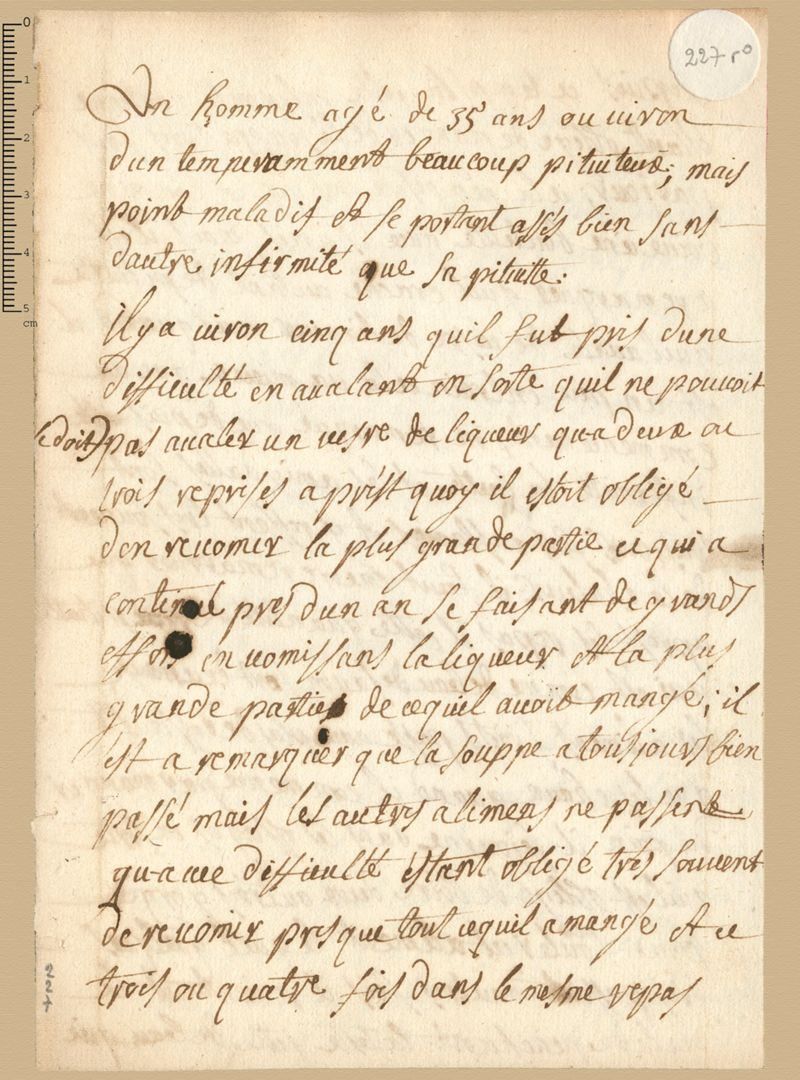 227 r°
Un homme agé de 35 ans ou viron
dun temperamment beaucoup pituiteux; mais
point maladif et se portant assés bien sans
dautre infirmité que sa pituitte.
il y a viron cinq ans quil fut pris dune
difficulté en aualant en sorte quil ne pouuoit
(doit) pas aualer un verre de liqueur qua deux ou
trois reprises aprèst quoy il estoit obligé
den reuomir la plus grande partie ce qui a
continué pres dun an se faisant de grands
effors en vomissans la liqueur et la plus
grande partie de cequil auoit mangé; il
est a remarquer que la souppe a tousjours bien
passé mais les autres alimens ne passent
qu'auec difficulté estant obligé très souuent
de reuomir presque tout cequil a mangé et ce
trois ou quatre fois dans le mesme repas
227
0
1
2
3
4
5
cm